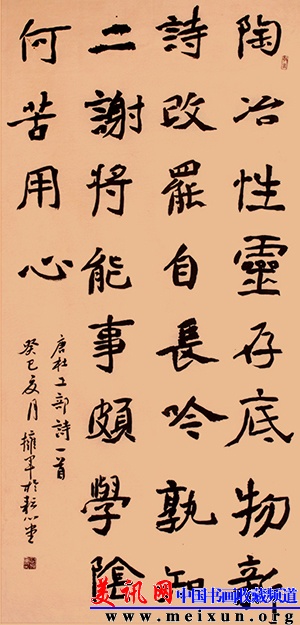 陶冶性靈存底物新
詩改罷自長吟孰知
二謝將能事頗學陰
何苦用心
唐杜工部詩一首
癸巳夏月擁軍於耘心堂
美讯网 中国书画收藏频道
www.meixun.org